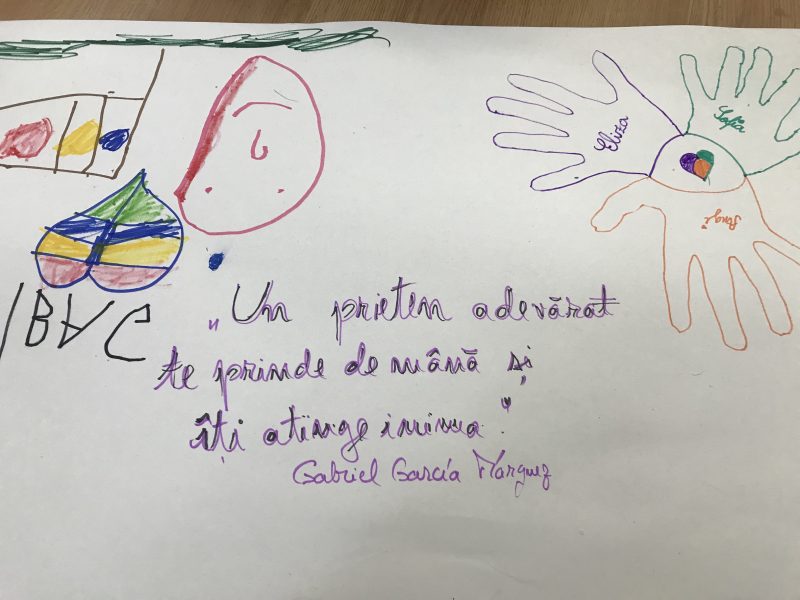 Eliza
Sofia
„Un prieten adevărat
te prinde de mână și
îți atinge inima”.
Gabriel García Marquez